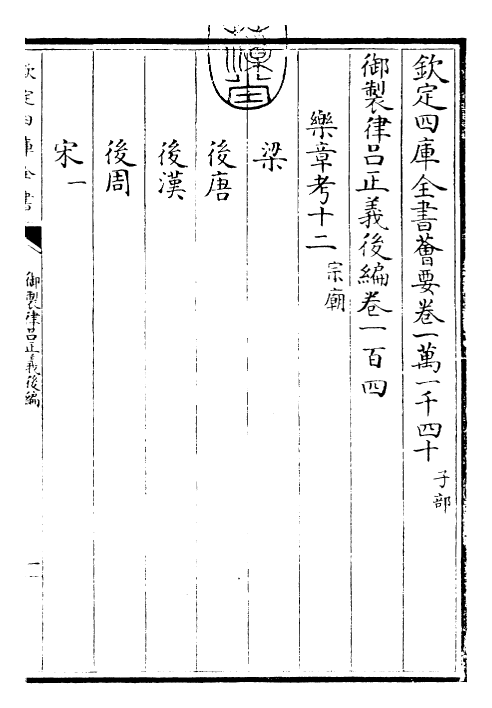 欽定四庫全書薈要卷一萬一千四十 子部
御製律呂正義後編卷一百四
樂章考十二 宗廟
梁
後唐
後漢
後周
宋一
欽定四庫全書
御製律呂正義後編
一